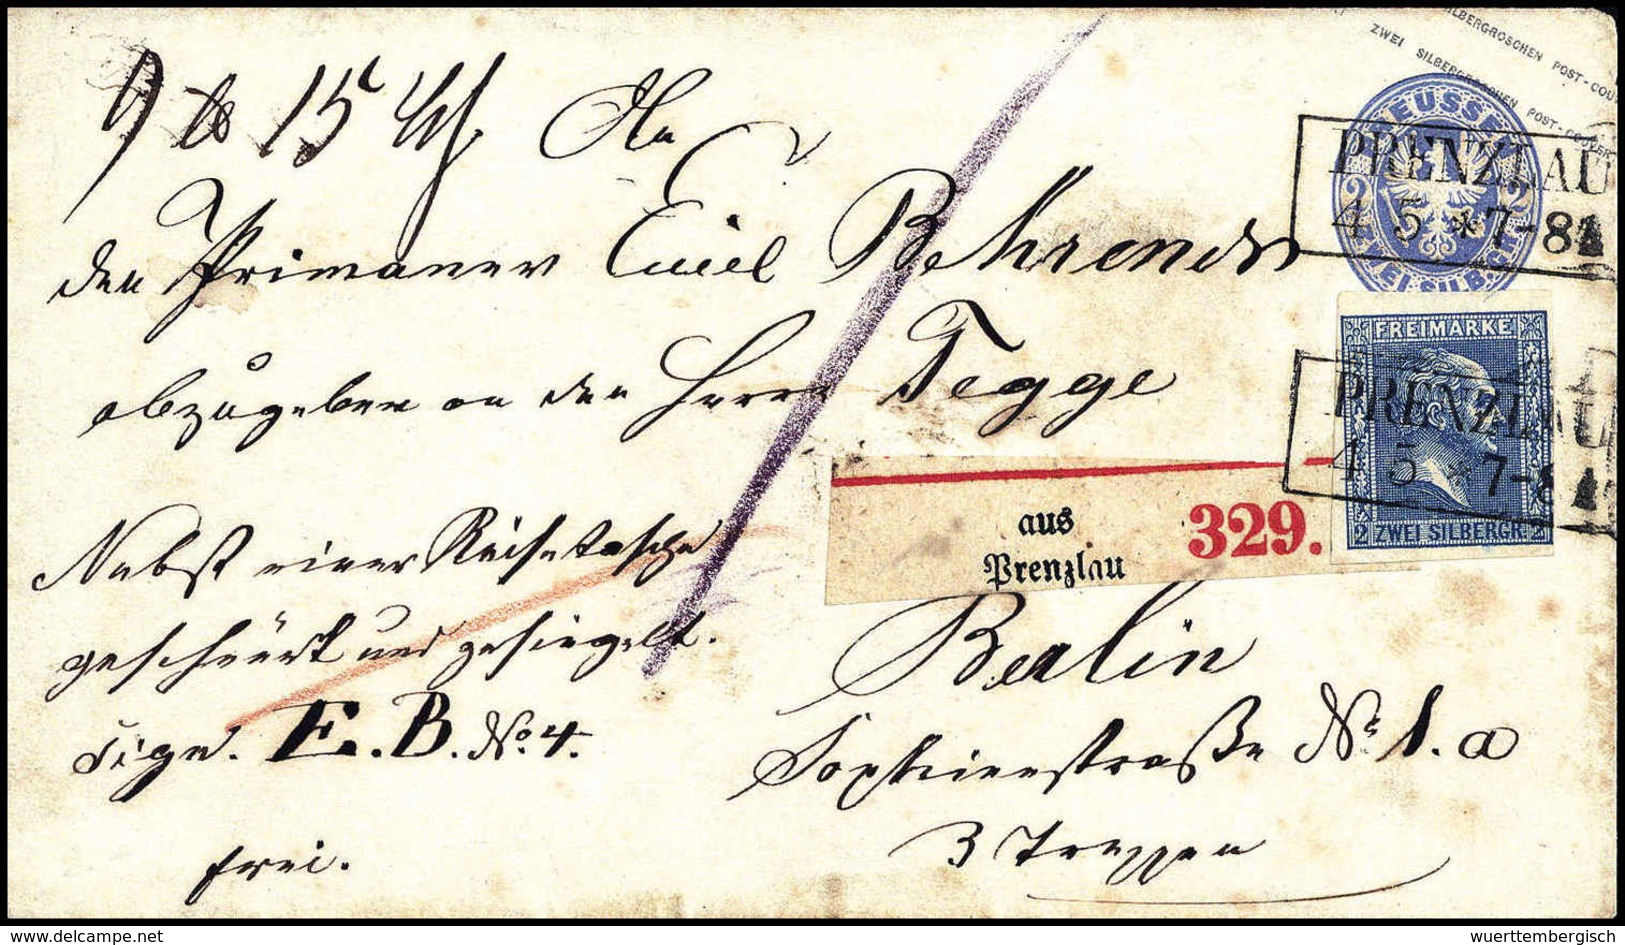 SILBERGROSCHEN POST-COUVERT
ZWEI SILBERGROSCHEN POST-COUVERT
9 ℔ 15
An
den Primaner Emil Behrends
abzugeben an den Herrn Tegge
PREUSSEN
2 2
ZWEI SILB.GR.
PRENZLAU
4 5 * 7-8
FREIMARKE
2 ZWEI SILBERGR. 2
PRENZLAU
4 5 * 7-8
aus
Prenzlau
329.
Nebst einer Reisetasche
geschnürt und gesiegelt.
sign. E. B. No. 4.
frei.
Berlin
Sophienstraße Nr. 1. a
3 Treppen
wuerttembergisch